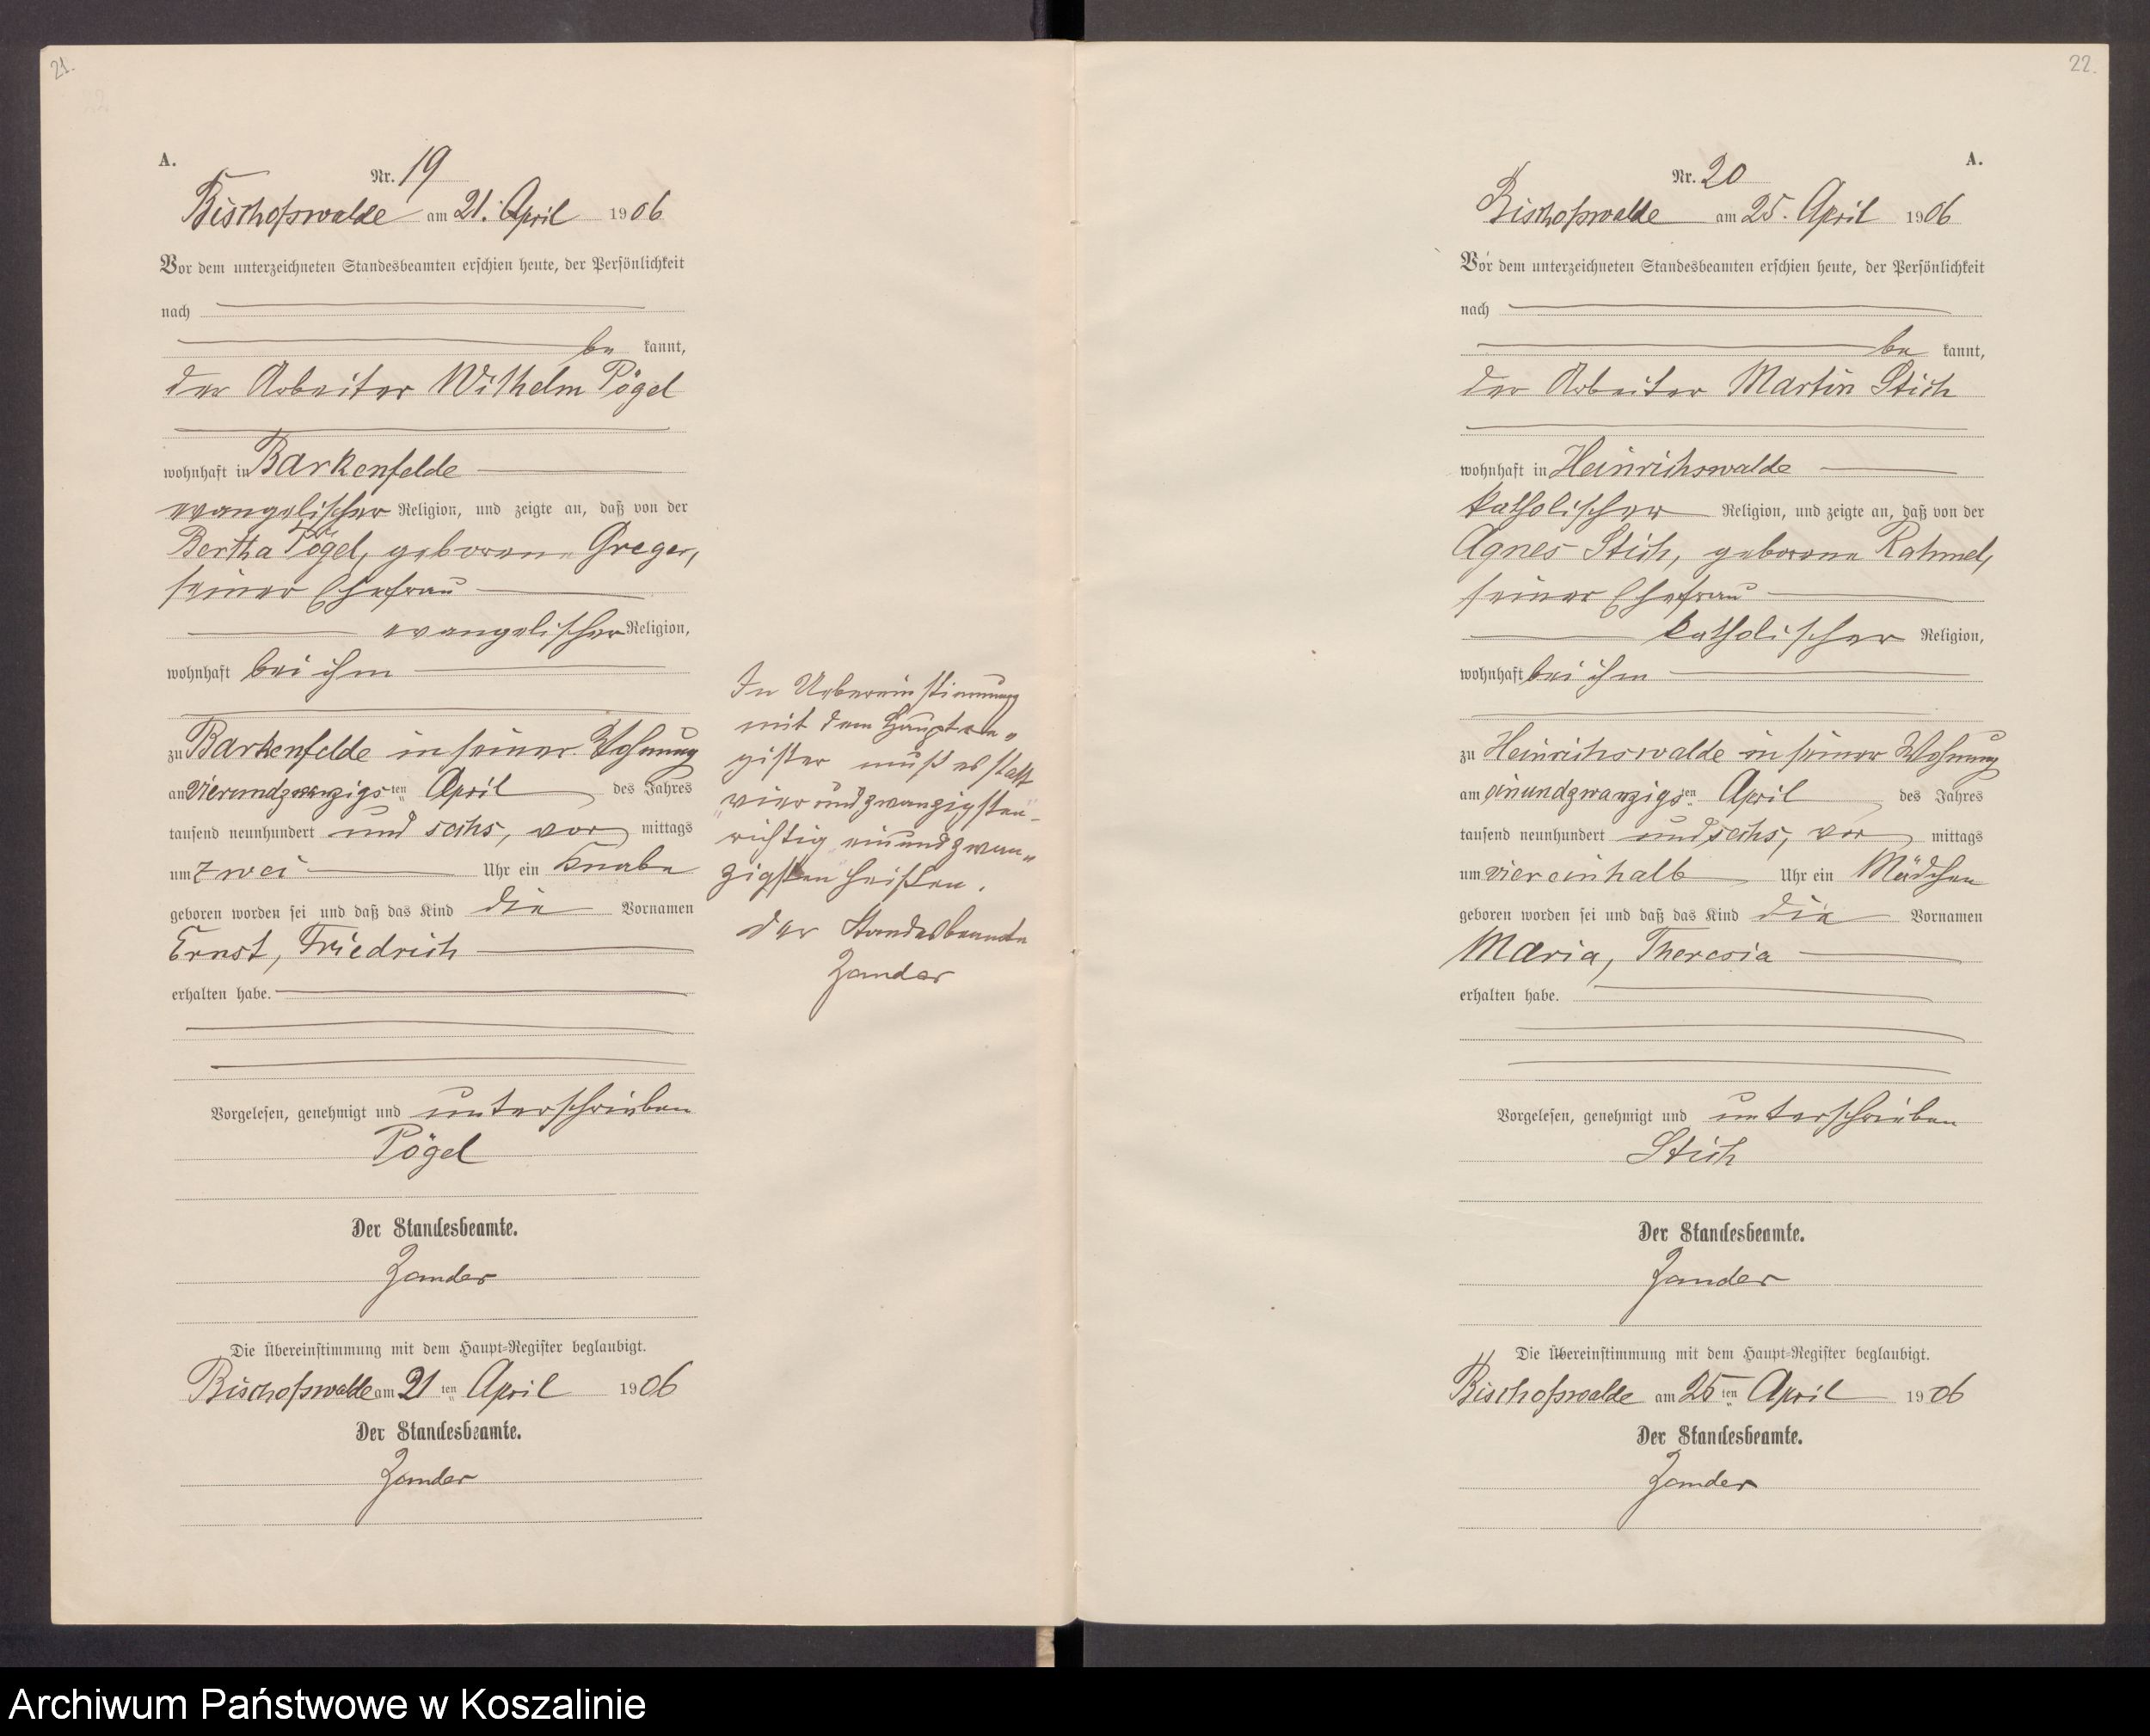 21.
A.
Nr. 19
Bischofswalde am 21. April 1906
Vor dem unterzeichneten Standesbeamten erschien heute, der Persönlichkeit
nach
be kannt,
der Arbeiter Wilhelm Pögel
wohnhaft in Barkenfelde
evangelischer Religion, und zeigte an, daß von der
Bertha Pögel, geborene Greger,
seiner Ehefrau
evangelischer Religion,
wohnhaft bei ihm
zu Barkenfelde in seiner Wohnung
am vierundzwanzigsten April des Jahres
tausend neunhundert und sechs, vor mittags
um zwei Uhr ein Knabe
geboren worden sei und daß das Kind die Vornamen
Ernst, Friedrich
erhalten habe.
Vorgelesen, genehmigt und unterschrieben
Pögel
Der Standesbeamte.
Zander
Die Übereinstimmung mit dem Haupt-Register beglaubigt.
Bischofswalde am 21 ten April 1906
Der Standesbeamte.
Zander
In Uebereinstimmung
mit dem Hauptre„
gister muß es statt
„vierundzwanzigsten"
richtig „einundzwan„
zigsten" heißen.
Der Standesbeamte
Zander
22.
A.
Nr. 20
Bischofswalde am 25. April 1906
Vor dem unterzeichneten Standesbeamten erschien heute, der Persönlichkeit
nach
be kannt,
der Arbeiter Martin Stich
wohnhaft in Heinrichswalde
katholischer Religion, und zeigte an, daß von der
Agnes Stich, geborene Rahmel,
seiner Ehefrau
katholischer Religion,
wohnhaft bei ihm
zu Heinrichswalde in seiner Wohnung
am einundzwanzigsten April des Jahres
tausend neunhundert und sechs, vor mittags
um viereinhalb Uhr ein Mädchen
geboren worden sei und daß das Kind die Vornamen
Maria, Theresia
erhalten habe.
Vorgelesen, genehmigt und unterschrieben
Stich
Der Standesbeamte.
Zander
Die Übereinstimmung mit dem Haupt-Register beglaubigt.
Bischofswalde am 25 ten April 1906
Der Standesbeamte.
Zander
Archiwum Państwowe w Koszalinie